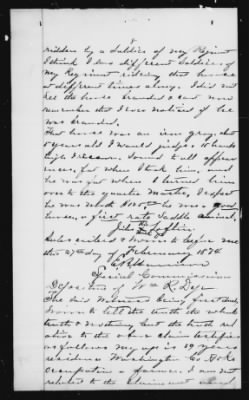 8
ridden by a Soldier of my Regiment
I think I saw different Soldiers of
my Regiment riding this horse
at different times along. I did not
see the horse branded & can not
remember that I ever noticed if he
was branded.
That horse was an iron gray, about
6 years old I would judge & 15 hands
high I reckon. Sound to all appear
ances, fat when I took him, and
he was fat when I turned him
over to the quarter master, I expect
he was worth $125, he was a good
horse, a first rate saddle animal,
John Laughlin
Subscribed & sworn to before me
this 27th day of February 1874
Special Commissioner
Deposition of Wm R. Dye
The said witness being first duly
sworn to tell the truth the whole
truth & nothing but the truth rel
ative to the above claim testifies
as follows my age is 29 years
residence Washington Co Ark
occupation a farmer. I am not
related to the claimant and